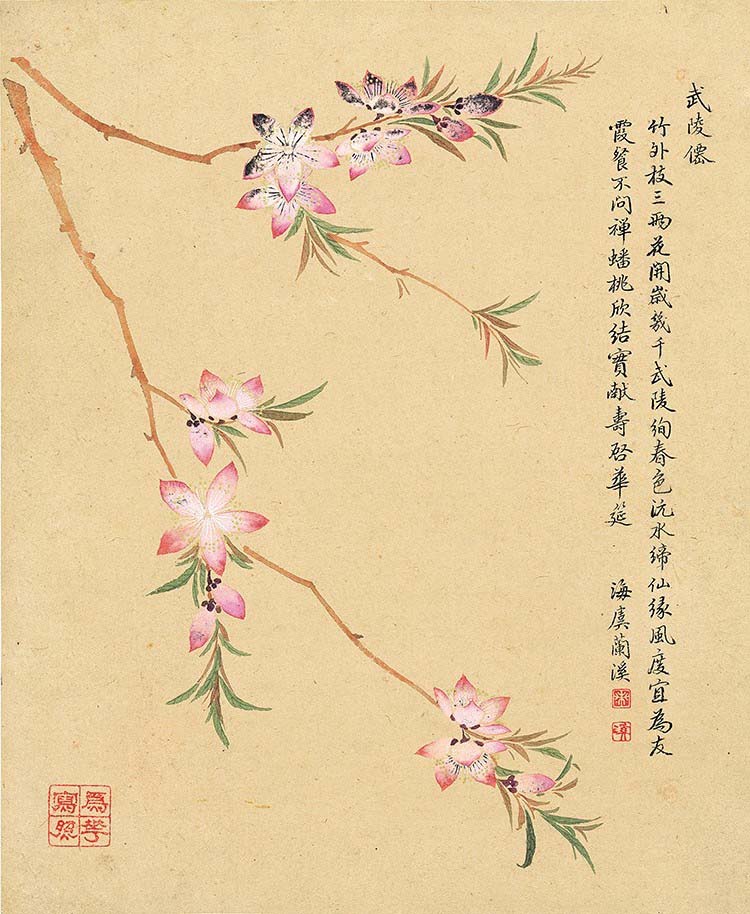 武陵僊
竹外枝三兩花開歲幾千武陵絢春色沅水締仙緣風度宜為友
霞餐不問禪蟠桃欣結實獻壽啓華筵
海虞蘭溪
爲花寫照